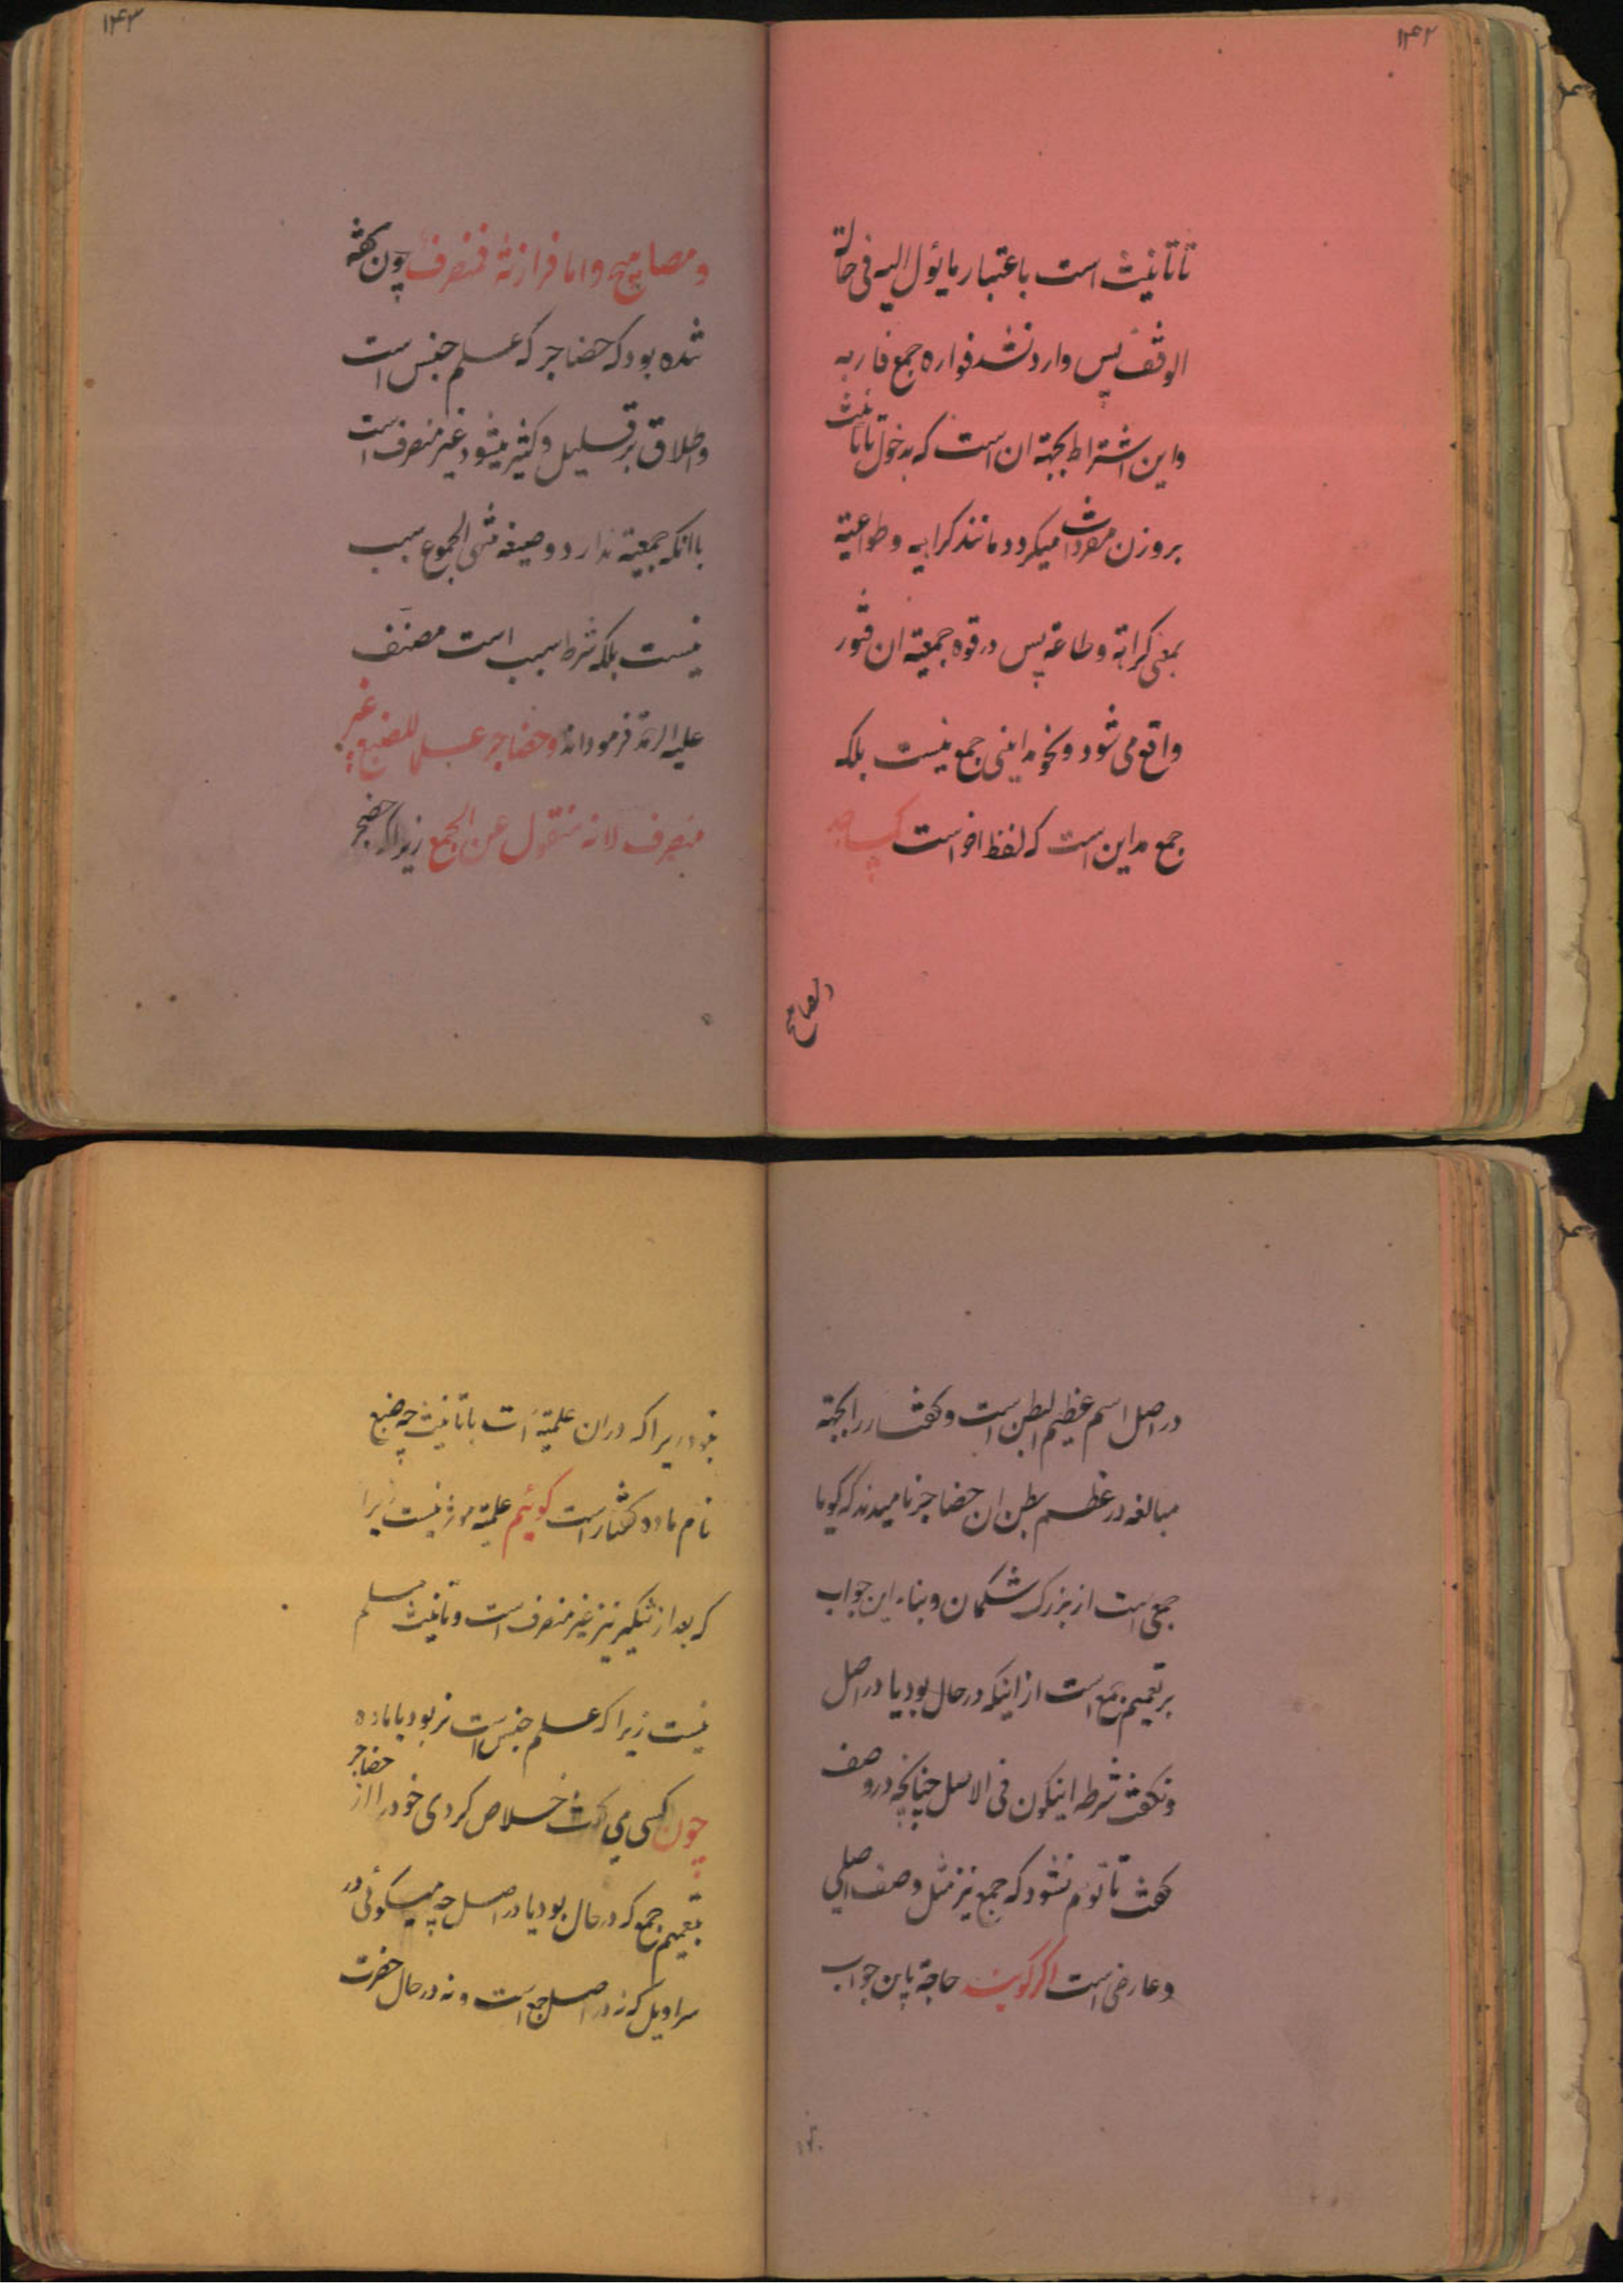 ۱۴۲
تا تانیث است باعتبار مایؤل الیه فی حالة
الوقف پس وارد نشد فواره جمع فاربه
واین اشتراط بجهة ان است که بدخول تا تانیث
بروزن مفردات میکردد مانند کراهیه وطواعیة
بمعنی کراهة وطاعة پس در قوه جمعیة ان فتور
واقع می شود ونحو مداینی جمع نیست بلکه
جمع مداین است که لفظ اخر است کمساجد
ومصابیح
۱۴۳
ومصابیح واما فرازنة فمنصرف چون کفته
شده بود که حضاجر که علم جنس است
واطلاق بر قلیل وکثیر میشود غیر منصرف است
باانکه جمعیة ندارد وصیغه منتهی الجموع سبب
نیست بلکه شرط سبب است مصنف
علیه الرحمة فرموداند وحضاجر علما للضبع غیر
منصرف لانه منقول عن الجمع زیرا که حضجر
در اصل اسم عظیم البطن است وکفتار را بجهة
مبالغه در عظم بطن ان حضاجر نامیدند که کویا
جمعی است از بزرک شکمان وبناء این جواب
بر تعمیم جمع است از اینکه در حال بود یا در اصل
ونکفت شرطه اینکون فی الاصل چنانچه در وصف
کفت تا توهم نشود که جمع نیز مثل وصف اصلی
وعارضی است اکر کویند حاجة باین جواب
نبود زیرا که دران علمیة است با تانیث چه ضبع
نام ماده کفتار است کوئیم علمیة موثر نیست زیرا
که بعد از تنکیر نیز غیر منصرف است وتانیث مسلم
نیست زیرا که علم جنس است نر بود یا ماده
چون کسی می کفت خلاص کردی خود را از حضاجر
بتعمیم جمع که در حال بود یا در اصل چه میکوئی در
سراویل که نه در اصل جمع است ونه در حال حضرت